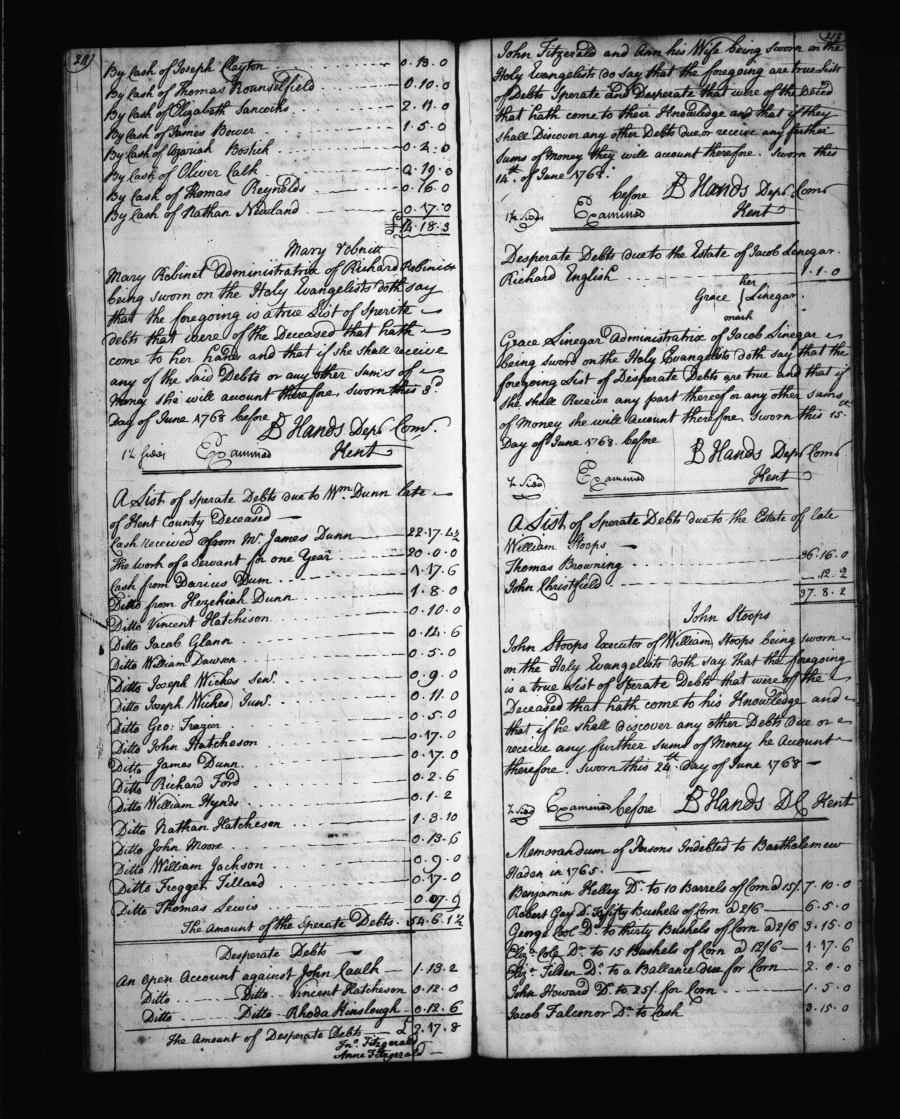 By Cash of Joseph Clayton 0.13.0
By Cash of Thomas Hounselfield 0.10.0
By Cash of Elizabeth 2.11.0
By Cash of James Bower 1.5.0
By Cash of Azariah Bostick 0.2.0
By Cash of Oliver Calk 0.19.0
By Cash of Thomas Reynolds 0.16.0
By Cash of Nathan Newland 0.17.0
£ 14.18.3
Mary
Mary Robinet administratrix of Richard Robinet
being sworn on the Holy Evangelists doth say
that the foregoing is a true List of Sperite
debts that were of the Deceased that hath
come to her hands and that if she shall receive
any of the said Debts or any other sums of
Money she will account therefore, sworn this 3d
Day of June 1768 before
B Hands Depy Comr.
1½ Sides Examined Kent
A List of Sperate Debts due to Wm. Dunn late
of Kent County Deceased
Cash received from Mr. James Dunn 22.17.4½
The work of a Servant for one Year 20.0.0
Cash from Darius Dunn 1.17.6
Ditto from Hezekiah Dunn 1.8.0
Ditto Vincent Hatchison 0.10.0
Ditto Jacob Glann 0.14.6
Ditto William Dawson 0.5.0
Ditto Joseph Wickes Senr. 0.9.0
Ditto Joseph Wickes Junr. 0.11.0
Ditto Geo: Frazier 0.5.0
Ditto John Hatcheson 0.17.0
Ditto James Dunn 0.17.0
Ditto Richard Ford 0.2.6
Ditto William Hynds 0.1.2
Ditto Nathan Hatcheson 1.3.10
Ditto John Moore 0.13.6
Ditto William Jackson 0.9.0
Ditto Froggett Tilland 0.17.0
Ditto Thomas Lewis
The Amount of the Sperate Debts. 54.6.1½
Desperate Debts
An open Account against John Caulk 1.13.2
Ditto Ditto Vincent Hatcheson 0.12.0
Ditto Ditto Rhoda Hinslough 0.12.6
The Amount of Desperate Debts £ 2.17.8
Jno. Fitzgerald
Anne Fitzgerald
213
John Fitzgerald and Ann his Wife being sworn on the
Holy Evangelists do say that the foregoing are true Lists
of Debts Sperate and Desperate that were of the Deced
that hath come to their Knowledge and that if they
shall Discover any other Debts due or receive any further
sums of Money they will account therefore. Sworn this
14th. of June 1768.
before B Hands Depy. Comr
1½ Sides Examined Kent
Desperate Debts due to the Estate of Jacob Linegar.
Richard English 1.1.0
her
Grace Linegar.
mark
Grace Linegar administratrix of Jacob Linegar
being sword on the Holy Evangelists doth say that the
foregoing List of Desperate Debts are true and that if
she shall Receive any part thereof or any other sums
of Money she will Account therefore. Sworn this 15th
Day of June 1768. before
B Hands Depy Comr
½ Side Examined Kent
A List of Sperate Debts due to the Estate of late
William Stoops
Thomas Browning 36.16.0
John Christfield 12.2
37.8.2
John Stoops
John Stoops Executor of William Stoops being sworn
on the Holy Evangelists doth say that the foregoing
is a true List of Sperate Debts that were of the
Deceased that hath come to his Knowledge and
that if he shall discover any other Debts due or
receive any further sums of Money he Account
therefore. Sworn this 24th. day of June 1768
½ Side Examined before B Hands DC Kent
Memorandum of Persons Indebted to Barthalemew
Hadan in 1765.
Benjamin Kelley Dr. to 10 Barrels of Corn a 15/. 7.10.0
Robert Gay Dr. to fifty Bushels of Corn a 2/6 6.5.0
George Cole Dr. to thirty Bushels of Corn a 2/6 3.15.0
Elizr. Cole Dr. to 15 Bushels of Corn a 2/6 1.17.6
Tilden Dr. to a Ballance due for Corn 2.0.0
John Howard Dr. to 25/. for Corn 1.5.0
Jacob Falconor Dr. to Cash 3.15.0